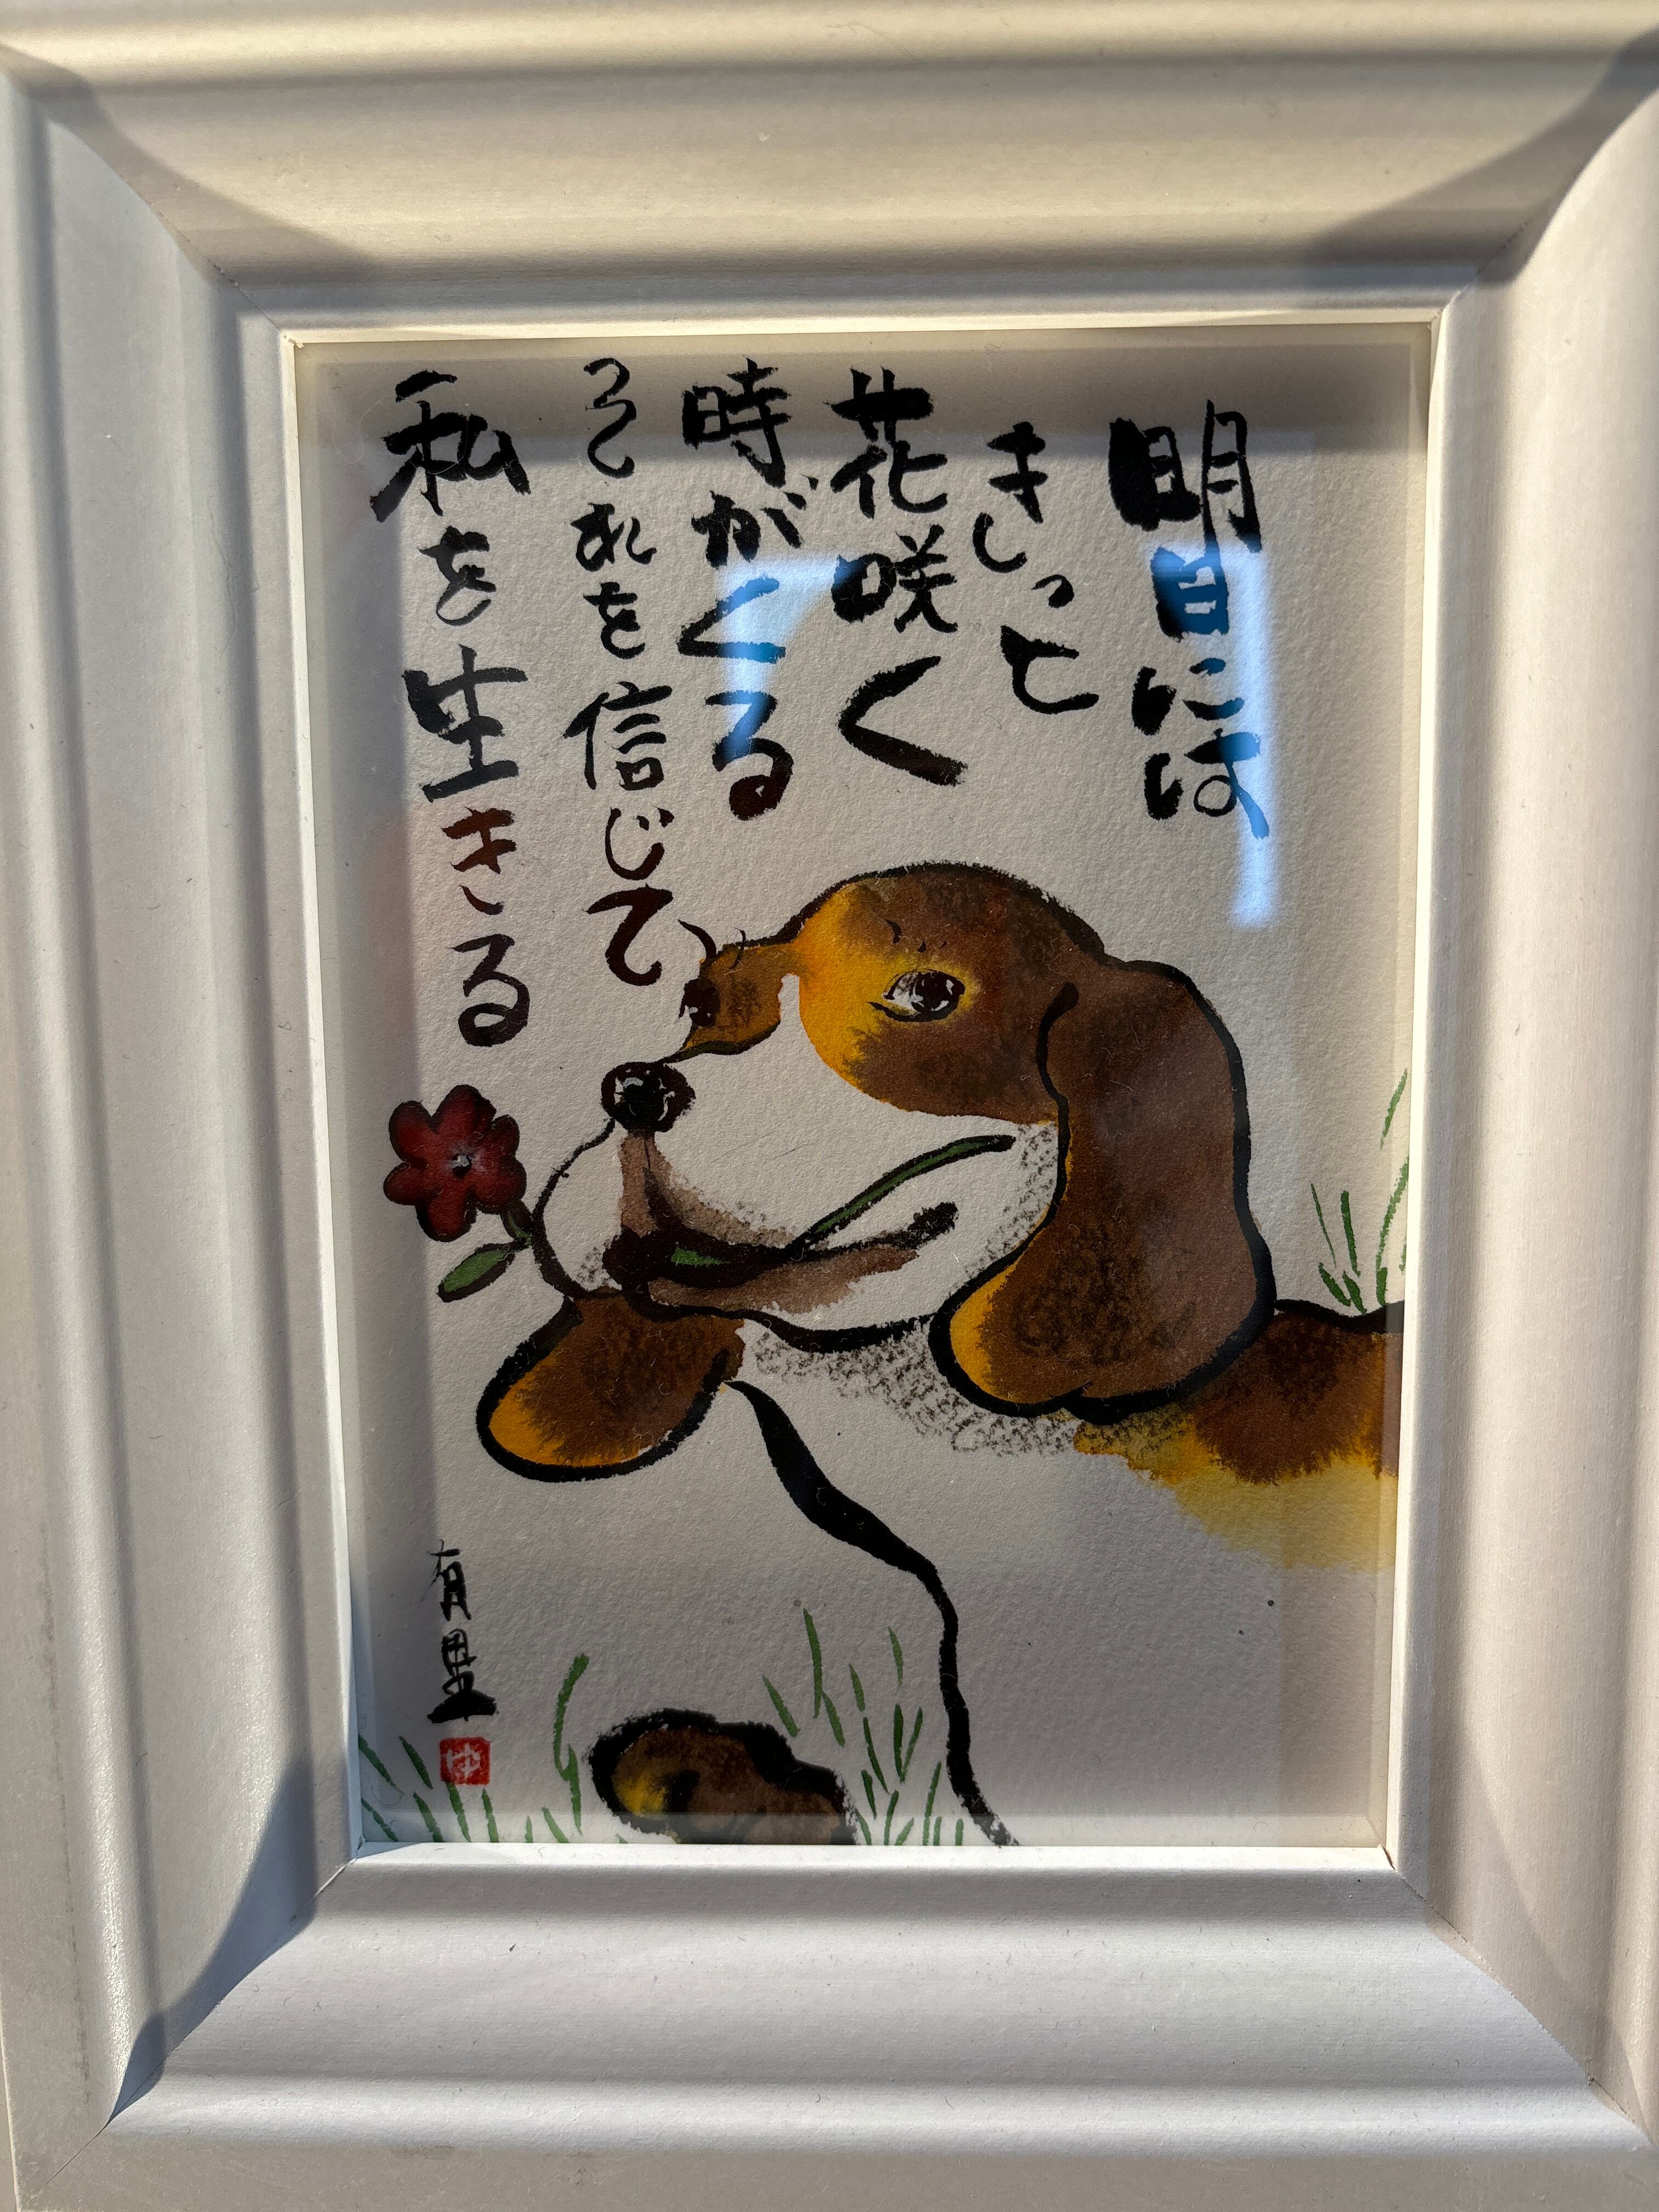 明日には
きっと
花咲く
時がくる
それを信じて
私を生きる
有里
ゆ